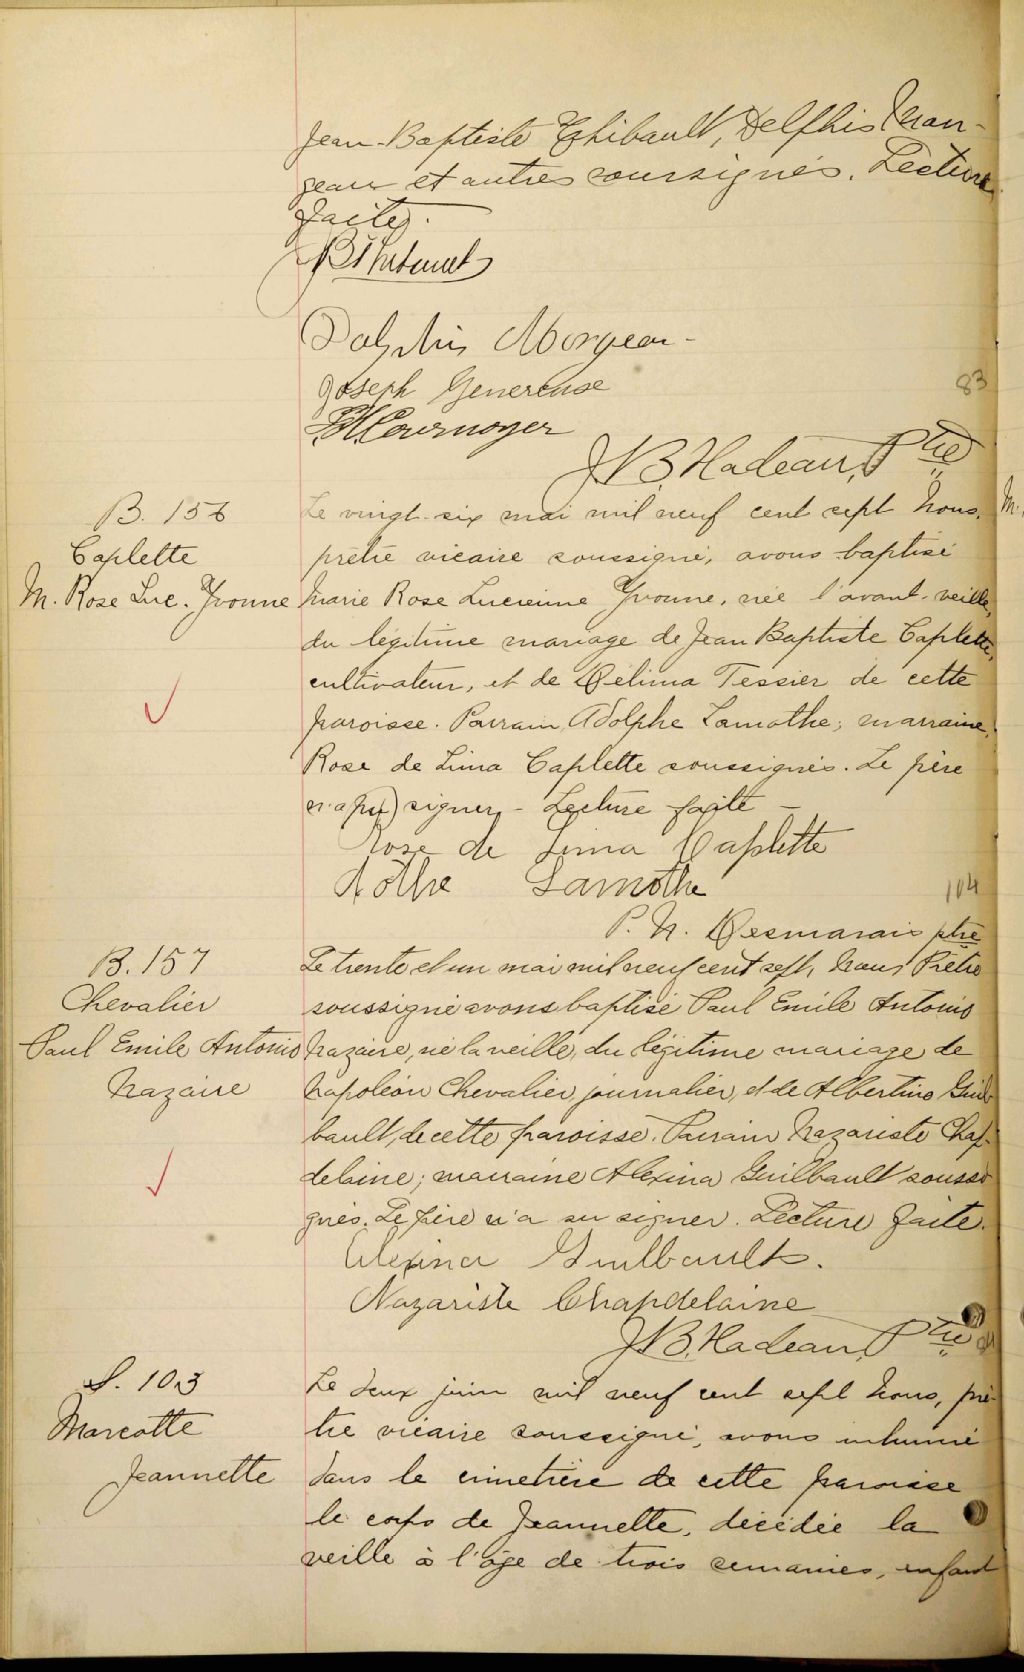 Jean-Baptiste Thibault, Delphis Mon-
geau et autres soussignés. Lecture
faite.
JB Thibault
Dolphis Mongeau
Joseph Genereuse
Cournoyer
83
J.B. Nadeau, Ptre
B. 156
Caplette
M. Rose Luc. Yvonne
Le vingt-six mai mil neuf cent sept Nous,
prêtre vicaire soussigné, avons baptisé
Marie Rose Lucienne Yvonne, née l'avant-veille,
du légitime mariage de Jean Baptiste Caplette,
cultivateur, et de Délima Tessier de cette
paroisse. Parrain, Adolphe Lamothe; marraine,
Rose de Lima Caplette soussignés. Le père
n'a (pu) signer - Lecture faite -
Rose de Lima Caplette
Lamothe
104
P. N. Desmarais ptre
B. 157
Chevalier
Paul Emile Antonio
Nazaire
Le trente et un mai mil neuf cent sept, Nous Prêtre
soussigné avons baptisé Paul Emile Antonio
Nazaire, né la veille, du légitime mariage de
Napoléon Chevalier, journalier, et de Albertine Guil-
bault, de cette paroisse. Parrain Nazariste Chap-
delaine; marraine Alexina Guilbault soussi
gnés. Le père n'a su signer. Lecture faite.
Alexina Guilbault.
Nazariste Chapdelaine
J.B. Nadeau, Ptre
S. 103
Marcotte
Jeannette
Le deux juin mil neuf cent sept Nous, prê-
tre vicaire soussigné, avons inhumé
dans le cimetière de cette paroisse
le corps de Jeannette, décédée la
veille à l'âge de trois semaines, enfant